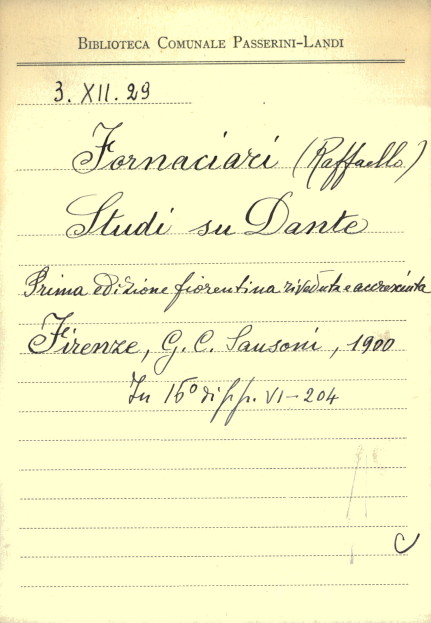 BIBLIOTECA COMUNALE PASSERINI-LANDI
3. XII. 29
Fornaciari (Raffaello)
Studi su Dante
Prima edizione fiorentina riveduta e accresciuta
Firenze, G. C. Sansoni, 1900
In 16° di pp. VI-204
C